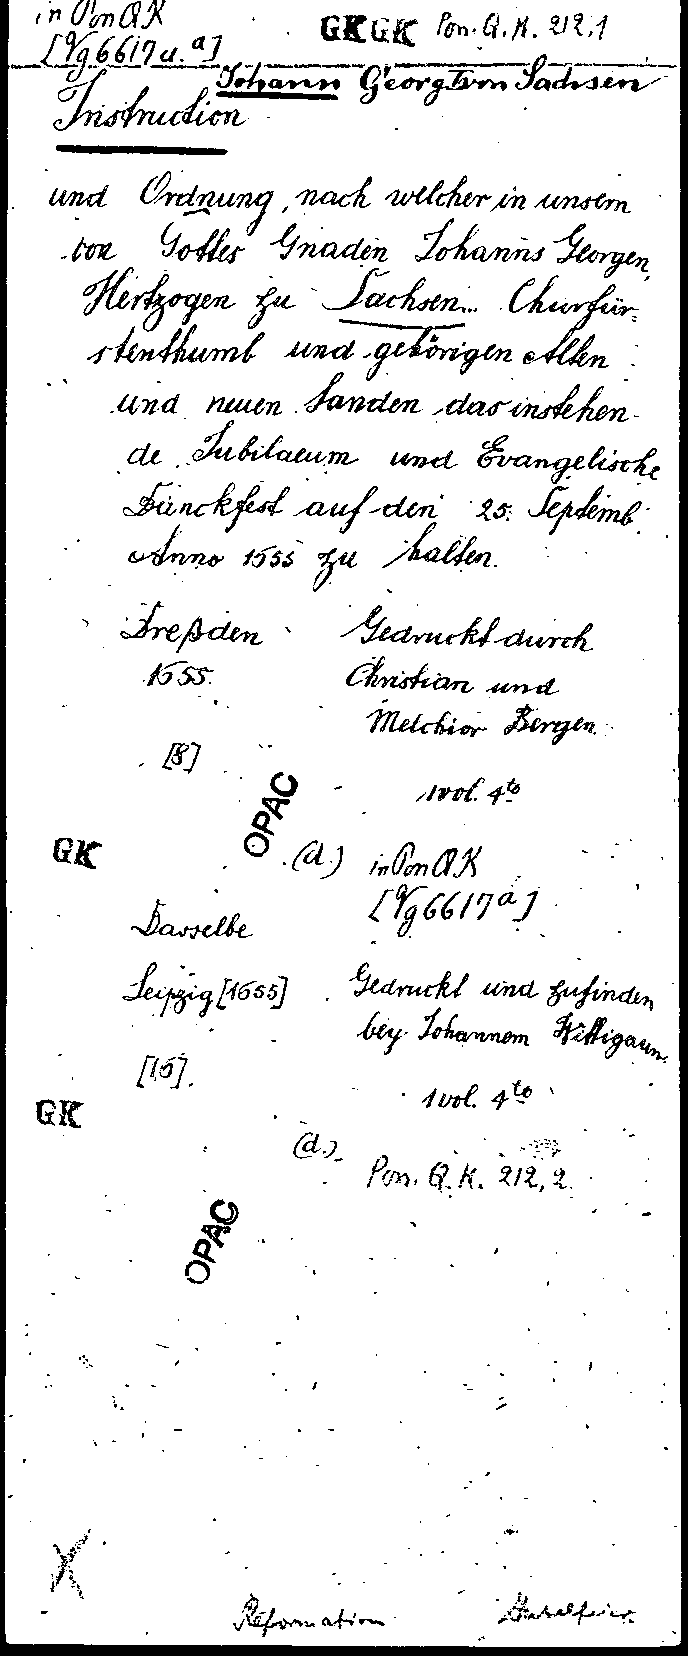 in Pon QK
GK GK Pon. Q. K. 212,1
[Vg 6617 u. a]
Johann Georg I von Sachsen
Instruction
und Ordnung, nach welcher in unsern
von Gottes Gnaden Johanns Georgen,
Hertzogen zu Sachsen... Churfür-
stenthumb und gehörigen Alten
und neuen Landen das instehen-
de Jubilaeum und Evangelische
Danckfest auf den 25. Septemb.
Anno 1655 zu halten.
Dreßden Gedruckt durch
1655. Christian und
Melchior Bergen.
[8]
1 vol. 4to
OPAC
GK
(d.) in Pon QK
[Vg 6617 a]
Dasselbe
Leipzig [1655] Gedruckt und zufinden
bey Johannem Wittigaun.
[15].
1 vol. 4to
GK
(d.)
Pon. Q. K. 212, 2
OPAC
X
Reformation